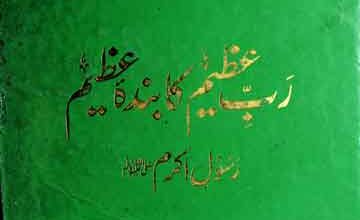 رَبِّ عظیم کا بندۂ عظیم
رَسُولِ اکرم ﷺ